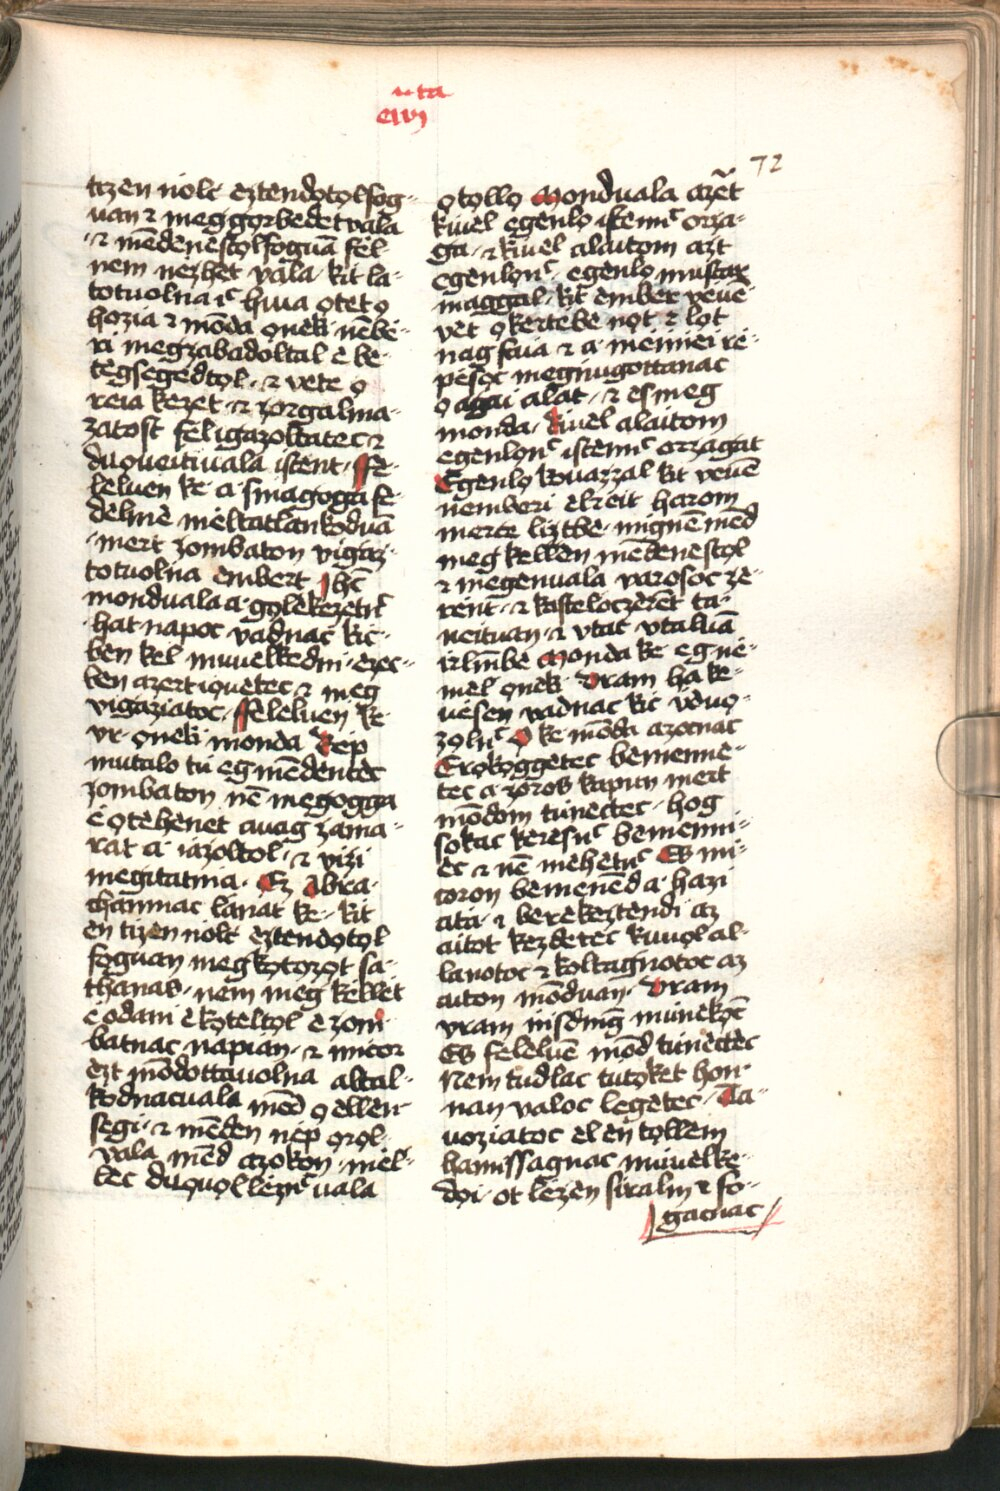 72
tizen nolc eztendo̗to̗lfog-
uan ⁊ meg gorbedet vala
⁊ mēdenestolfoguā fel
nem nezhet vala· kit la-
totuolna ic̄ hiua o̗tet o̗
hozia ⁊ mōda o̗nek· nēbe-
ri megzabadoltal e be-
tegsegedto̗l· ⁊ vete o̗
reia kezet ⁊ zorgalma-
zatost feligazoltatec ⁊
duo̗veitiuala istent· ffe-
leluen ke a· sinagoga fe-
delmē meltatlankoduā
mert zombaton vigaz-
totuolna embert ihc̄
monduala a· go̗lekezetn̄c
hat napoc vadnac kic-
ben kel miuelkedni· ezec-
ben azert io̗uetec ⁊ meg
vigaziatoc· ffeleluen ke
vr· o̗neki monda Kep
mutalo tú eg mēdentec
zombaton nē megogga
e o̗te̗henet auag zama-
rat a· iazoltol· ⁊ vizi
megitatnia· Ez Abra-
chamnac lanat ke· kit
en tizen nolc eztendo̗to̗l
foguan megko̗to̗zo̗t sa-
thanas· nem meg kellet
e odani e ko̗telto̗l e zom-
batnac napian· ⁊ micor
ezt mōdottauolna altal-
kodnacuala mēd o̗ ellen-
segi· ⁊ mēden nep o̗ro̗l
vala mēd azokon· mel-
lec duo̗uo̗llezn̄c vala
o̗tollo̗ Monduala azēt
kiuel egenlo̗ istenn̄c orza-
ga· ⁊ kiuel alaitom azt
egenlon̄c· egenlo̗ mustar
maggal· kit ember veuē
vet o̗ kertebe no̗t ⁊ lo̗t
nag faia ⁊ a· mennei re-
peso̗c megnugottanac
o̗ agai alat· ⁊ es meg
monda· Kiuel alaitom
egenlon̄c istenn̄c orzagat
Egenlo̗ kouazzal kit veuē
nemberi elreit harom
merce liztbe· mignē mēd
meg kellen mēdenestol
⁊ megenuala varosoc ze-
rent· ⁊ kasteloczērēt ta-
neituan· ⁊ vtac vtaluā
irlm̄be Monda ke eg ne-
mel o̗nek· Vram ha ke-
uesen vadnac kic vduo̗-
zo̗ln̄c O̗ ke mōda azocnac
Ero̗ko̗ggetec bemenne-
tec a· zoros kapun mert
mōdom tunectec· hog
sokac keresn̄c bemenni-
ec ⁊ nē mehetn̄c Es mi-
coron bemenēd a· hazi
ata· ⁊ berekeztendi az
aitot kezdetec kiuo̗l al-
lanotoc ⁊ koltagnotoc az
aiton mōduan· Vram
vram inisdmg̅ munekōc
Es feleluē mōd tunectec
Nem tudlac tuto̗ket hon-
nan valoc legetec· Ta-
uoziatoc el en to̗llem
hamissagnac miuelke-
do̗i· ot lezen siralm ⁊ fo-
gacnac